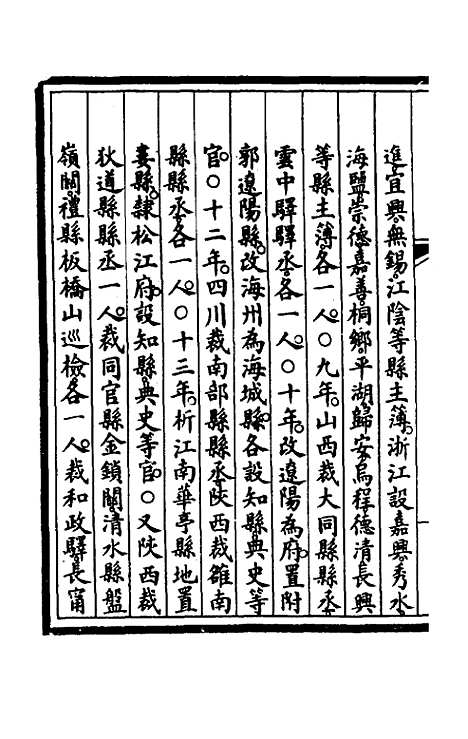 進宜興無錫江陰等縣主薄浙江設嘉興秀水
海鹽崇德嘉善桐鄉平湖歸安烏程德清長興
等縣主薄各一人○九年山西裁大同縣縣丞
雲中驛驛丞各一人○十年改遼陽為府置附
郭遼陽縣改海州為海城縣各設知縣典史等
官○十二年四川裁南部縣縣丞陝西裁雒南
縣縣丞各一人○十三年析江南華亭縣地置
婁縣隸松江府設知縣典史等官○又陝西裁
狄道縣縣丞一人裁同官縣金鎖關清水縣盤
嶺關禮縣板橋山巡檢各一人裁和政驛長甯